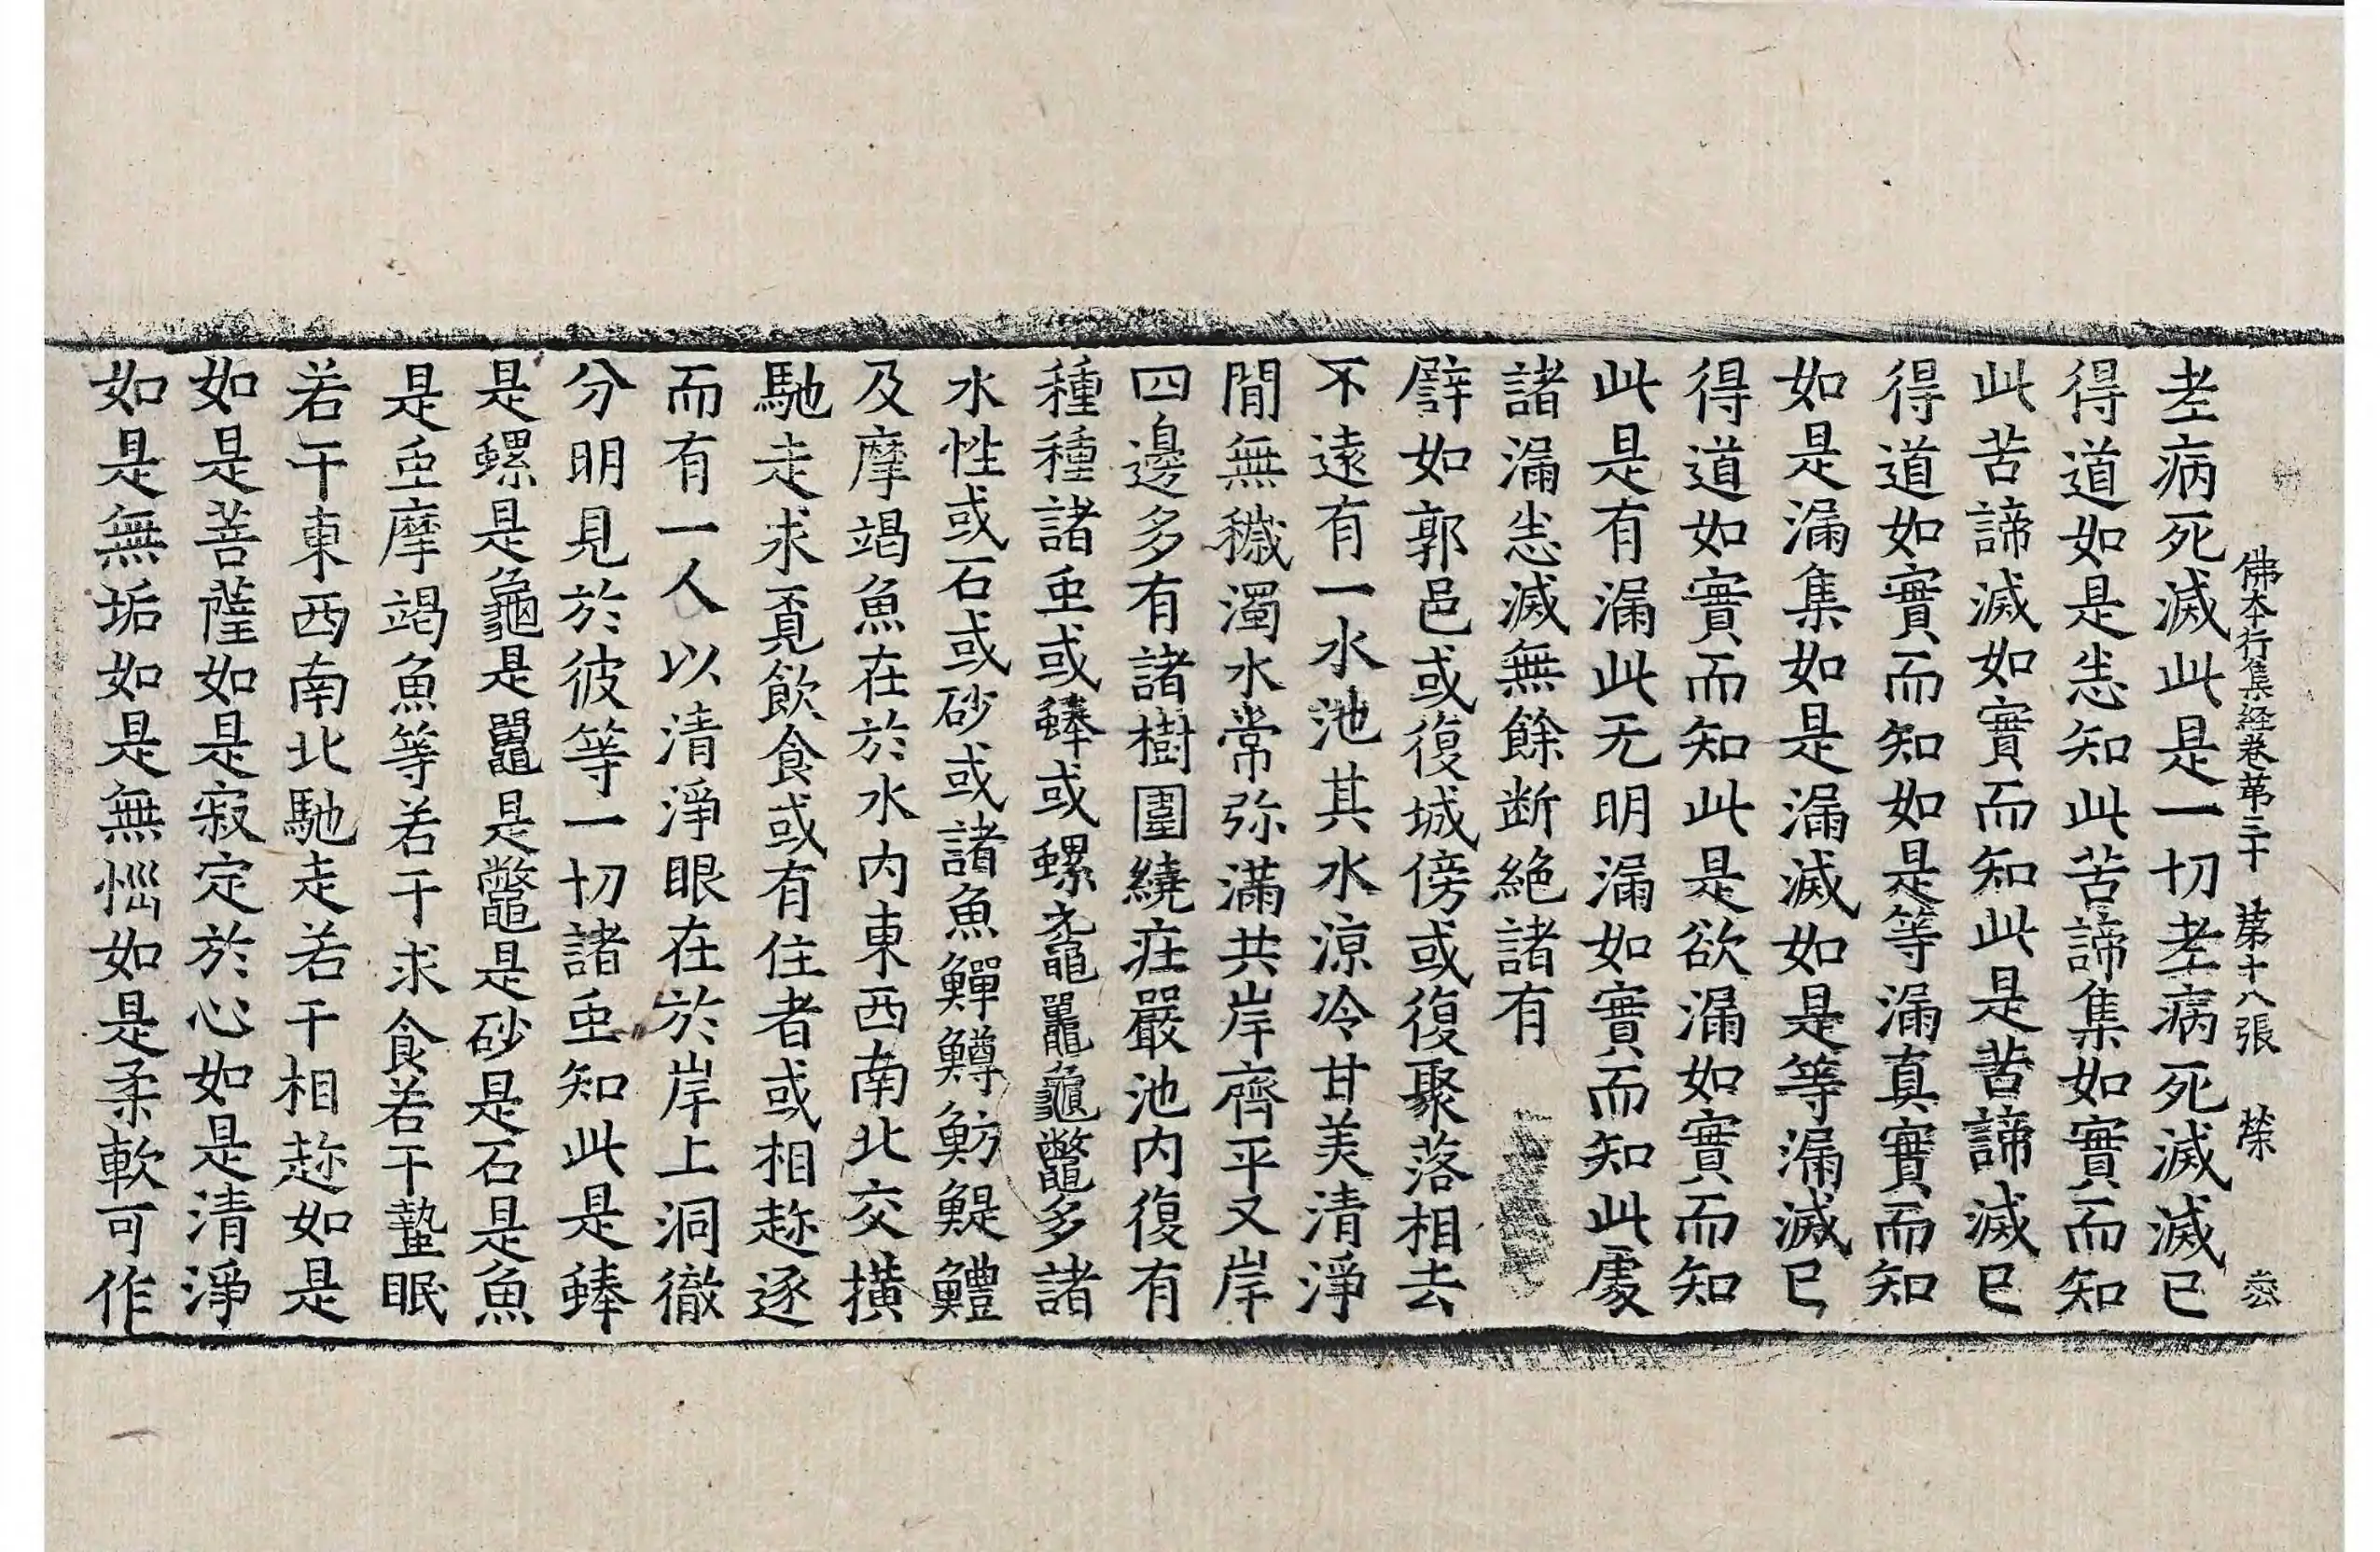 佛本行集経卷苐三十 苐十八張 榮
老病死滅此是一切老病死滅滅已
得道如是悉知此苦諦集如實而知
此苦諦滅如實而知此是苦諦滅已
得道如實而知如是等漏真實而知
如是漏集如是漏滅如是等漏滅已
得道如實而知此是欲漏如實而知
此是有漏此无明漏如實而知此處
諸漏悉滅無餘断絶諸有
譬如郭邑或復城傍或復聚落相去
不遠有一水池其水涼冷甘美清淨
閒無穢濁水常弥滿共岸齊平又岸
四邊多有諸樹圍繞庄嚴池内復有
種種諸虫或蜯或螺黿鼉龜鼈多諸
水性或石或砂或諸魚鱓鱒魴鯷鱧
及摩竭魚在於水内東西南北交撗
馳走求覓飲食或有住者或相趂逐
而有一人以清淨眼在於岸上洞徹
分明見於彼等一切諸虫知此是蜯
是螺是龜是鼉是鼈是砂是石是魚
是虫摩竭魚等若干求食若干蟄眠
若干東西南北馳走若干相趂如是
如是菩薩如是寂定於心如是清淨
如是無垢如是無惱如是柔軟可作